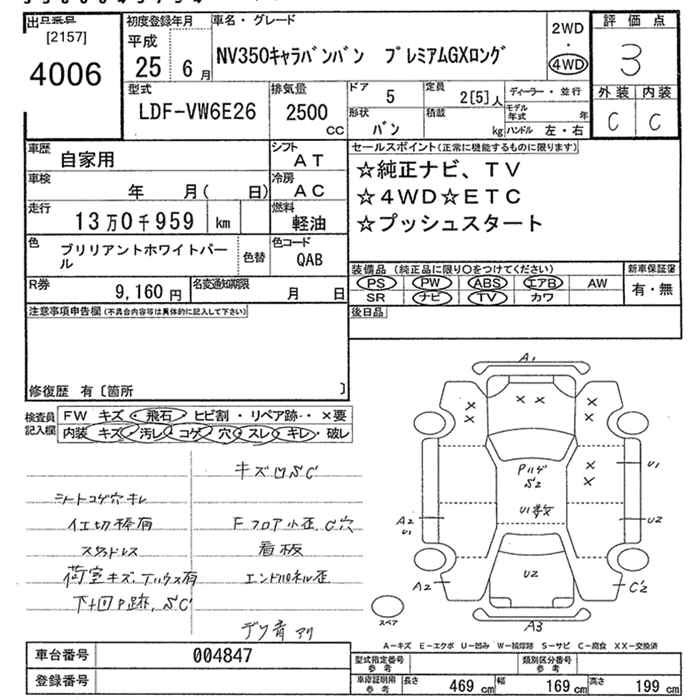 出品番号
[2157]
4006
初度登録年月
平成
25 6 月
車名・グレード
NV350キャラバンバン プレミアムGXロング
2WD
・
4WD
評価点
3
外装 内装
C C
型式
LDF-VW6E26
排気量
2500
CC
ドア
5
定員
2[5]人
ディーラー・並行
形状
バン
積載
kg
モデル年式 年
ハンドル 左・右
車歴
自家用
シフト
AT
車検
年 月( 日)
冷房
AC
走行
13万0千959 km
燃料
軽油
色
ブリリアントホワイトパール
色替
色コード
QAB
R券
9,160 円
名変通知期限
月 日
セールスポイント(正常に機能するものに限ります)
☆純正ナビ、TV
☆4WD☆ETC
☆プッシュスタート
装備品 (純正品に限り○をつけてください)
PS PW ABS エアB AW
SR ナビ TV カワ
新車保証書
有・無
後日品
注意事項申告欄(不具合内容等は具体的に記入して下さい)
修復歴 有〔箇所 〕
検査員記入欄
FW キズ・飛石・ヒビ割・リペア跡・・×要
内装 キズ・汚レ・コゲ・穴・スレ・キレ・破レ
キズ凹SC
シートコゲ穴キレ
Fフロア小歪、C穴
看板
エンドパネル歪
A1
× ×
×
×
×
×
×
×
S2
U1数
U1
U2
A2
U1
U2
A2
C2
A3
スペア
A-キズ E-エクボ U-凹み W-補修跡 S-サビ C-腐食 XX-交換済
車台番号
004847
登録番号
型式指定番号
参考
類別区分番号
参考
車庫証明用
参考
長さ 469 cm 幅 169 cm 高さ 199 cm